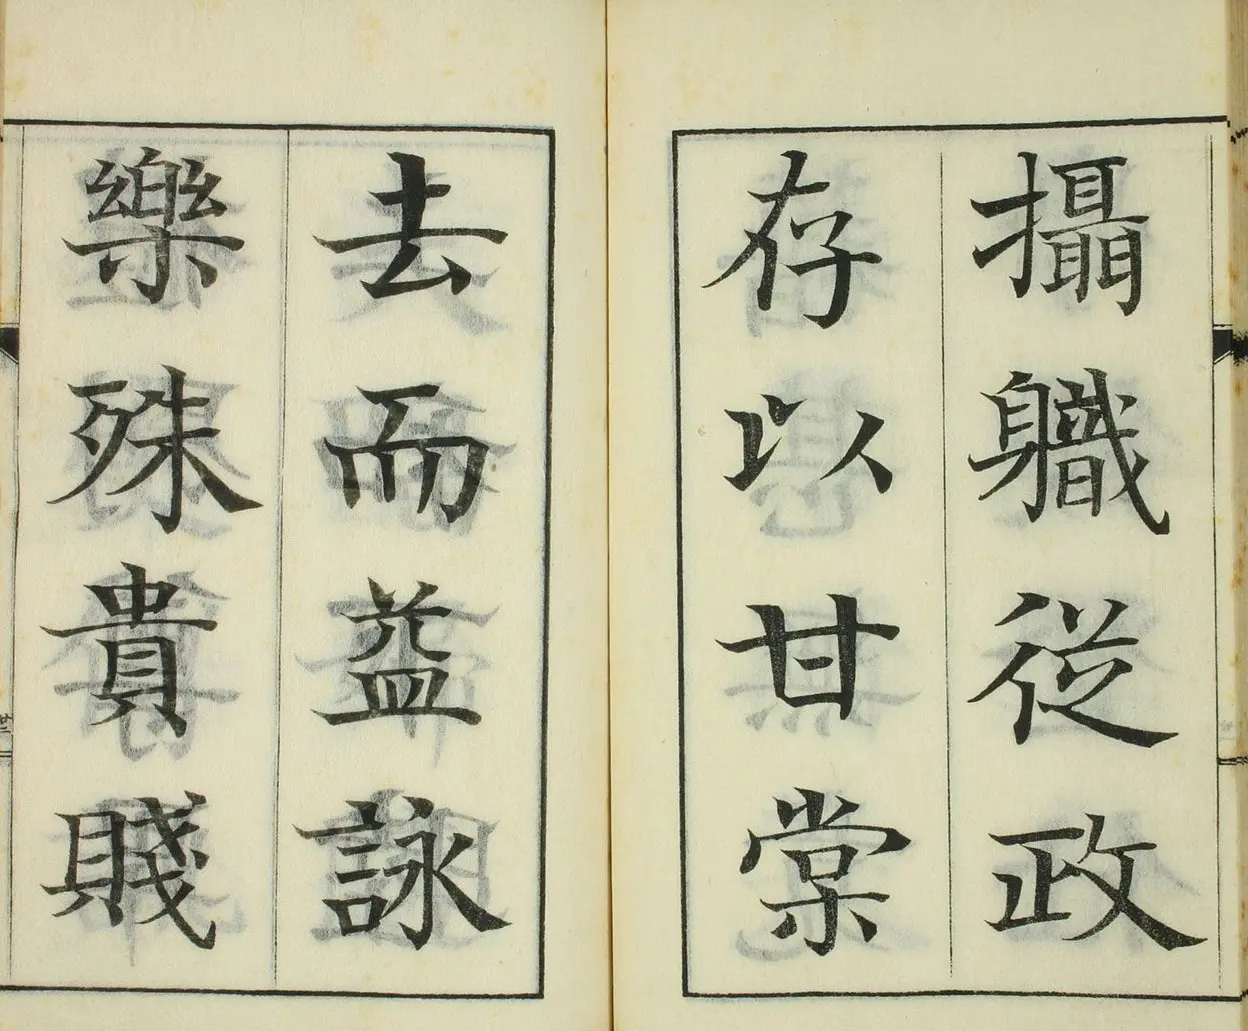 攝軄從政
存以甘棠
去而益詠
樂殊貴賤